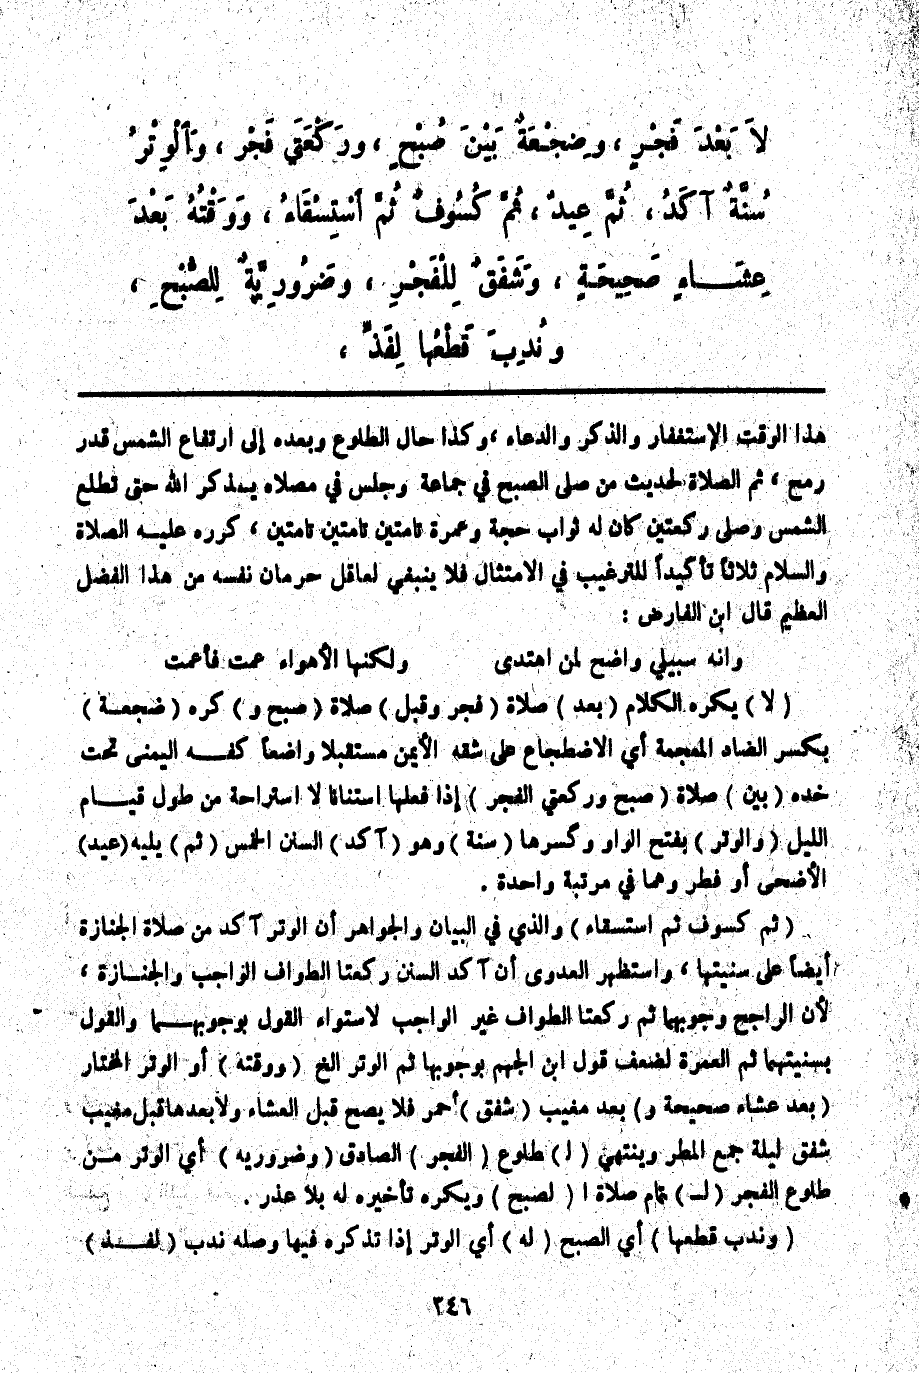 لاَ بَعْدَ فَجْرٍ ، وضِجْعَةٌ بَيْنَ صُبْحٍ ، ورَكْعَتَيَ فَجْرٍ ، وَٱلْوِتْرُ
سُنَّةٌ آكَدُ ، ثُمَّ عِيدٌ ، ثمَّ كُسُوفٌ ثُمَّ ٱسْتِسْقَاءُ ، وَوَقْتُهُ بَعْدَ
عِشَاءٍ صَحِيحَةٍ ، وَشَفَقٌ لِلْفَجْرِ ، وضَرُورِيَّةٌ لِلصُّبْحِ ،
ونُدِبَ قَطْعُها لِفَذٍّ ،
هذا الوقت الإستغفار والذكر والدعاء ، وكذا حال الطلوع وبعده إلى ارتفاع الشمس قدر
رمح ، ثم الصلاة لحديث من صلى الصبح في جماعة وجلس في مصلاه يذكر الله حتى تطلع
الشمس وصلى ركعتين كان له ثواب حجة وعمرة تامتين تامتين تامتين ، كرره عليه الصلاة
والسلام ثلاثاً تأكيداً للترغيب في الامتثال فلا ينبغي لعاقل حرمان نفسه من هذا الفضل
العظيم قال ابن الفارض :
وانه سبيلي واضح لمن اهتدى ولكنها الأهواء عمت فأعمت
( لا ) يكره الكلام ( بعد ) صلاة ( فجر وقبل ) صلاة ( صبح و ) كره ( ضجعة )
بكسر الضاد المعجمة أي الاضطجاع على شقه الأيمن مستقبلا واضعاً كفه اليمنى تحت
خده ( بين ) صلاة ( صبح وركعتي الفجر ) إذا فعلها استنانا لا استراحة من طول قيام
الليل ( والوتر ) بفتح الواو وكسرها ( سنة ) وهو ( آكد ) السنن الخمس ( ثم ) يليه (عيد)
الأضحى أو فطر وهما في مرتبة واحدة .
( ثم كسوف ثم استسقاء ) والذي في البيان والجواهر أن الوتر آكد من صلاة الجنازة
أيضاً على سنيتها ، واستظهر العدوى أن آكد السنن ركعتا الطواف الواجب والجنازة ،
لأن الراجح وجوبهما ثم ركعتا الطواف غير الواجب لاستواء القول بوجوبهما والقول
بسنيتهما ثم العمرة لضعف قول ابن الجهم بوجوبها ثم الوتر الخ ( ووقته ) أو الوتر المختار
( بعد عشاء صحيحة و) بعد مغيب ( شفق ) أحمر فلا يصح قبل العشاء ولا بعدها قبل مغيب
شفق ليلة جمع المطر وينتهي ( ل ) طلوع ( الفجر ) الصادق ( وضروريه ) أي الوتر من
طلوع الفجر ( لـ ) تمام صلاة ا ( لصبح ) ويكره تأخيره له بلا عذر .
( وندب قطعها ) أي الصبح ( له ) أي الوتر إذا تذكره فيها وصله ندب ( لفذ )
٣٤٦